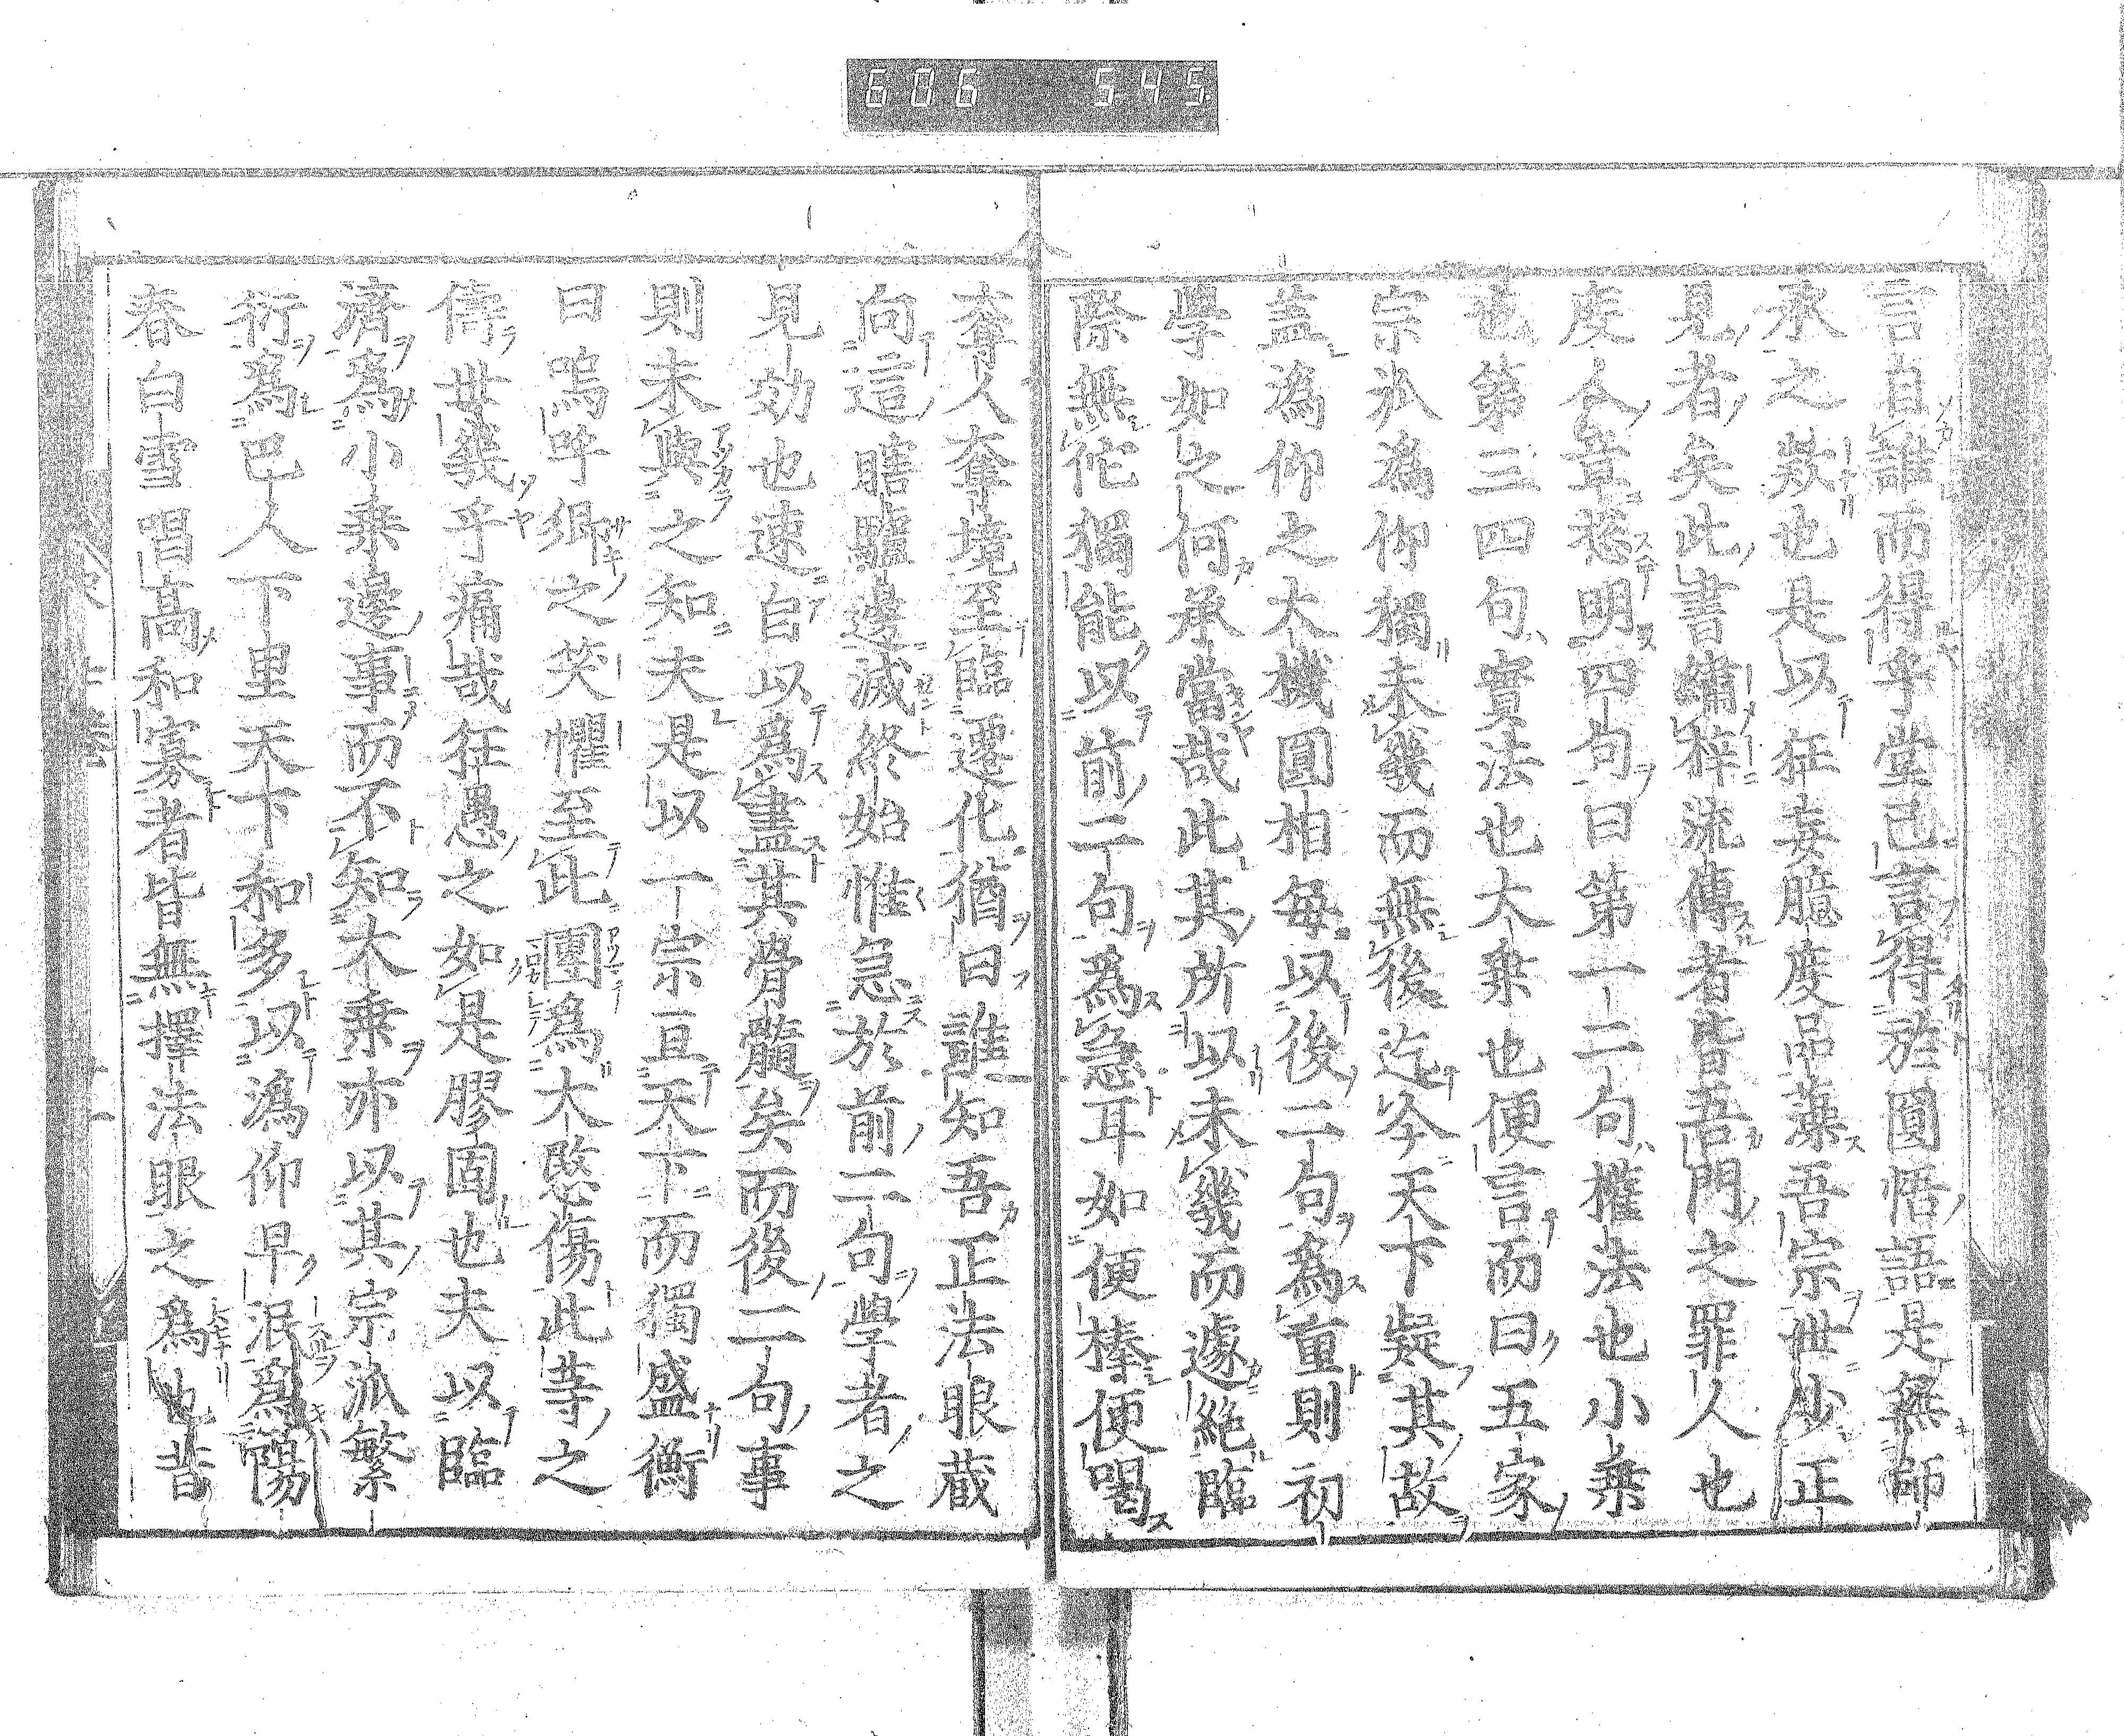 606 545
言自誰而得乎堂己言得於圓悟語是無師
承之歟也是以狂妄臆度品藻吾宗世少正
見者矣此書繡梓流傳者皆吾門之罪人也
度人章 明四句曰第一二句權法也小乘
也第三四句實法也大乘也便言而曰五家
宗派為仰獨未幾而無後迄今天下疑其故
蓋溈仰之大機圓相每以後二句為重則初
學如之何承當哉此其所以未幾而遽絕臨
際無佗獨能以前二句為急耳如便棒便喝
奪人奪境至臨遷化猶曰誰知吾正法眼藏
向這瞎驢邊滅終始惟急於前二句學者之
見効也速自以為盡其骨髓矣而後二句事
則未與之知夫是以一宗亘天下而獨盛衡
曰嗚呼鄉之笑懼至此團為大愍傷此等之
儔世幾乎痛哉狂愚之如是膠固也夫以臨
濟為小乘邊事而不知大乘亦以其宗派繁
衍為巴人下里天下和多以溈仰早泯為陽
春白雪唱高和寡者皆無擇法眼之為也昔